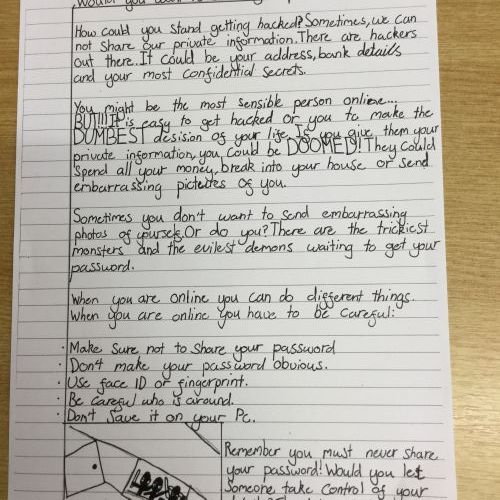 Would you
How could you stand getting hacked? Sometimes, we can
not share our private information. There are hackers
out there. It could be your address, bank details
and your most confidential secrets.
You might be the most sensible person online...
BUT!!! It is easy to get hacked or you to make the
DUMBEST desision of your life. If you give them your
private information, you could be DOOMED! They could
spend all your money, break into your house or send
embarrassing of you.
Sometimes you don't want to send embarrassing
photos of yourself. Or do you? There are the trickiest
monsters and the evilest demons waiting to get your
password.
When you are online you can do different things.
When you are online you have to be careful:
· Make sure not to share your password
· Don't make your password obvious.
· Use face ID or fingerprint.
· Be careful who is around.
· Don't save it on your Pc.
Remember you must never share
your password! Would you let
someone take control of your